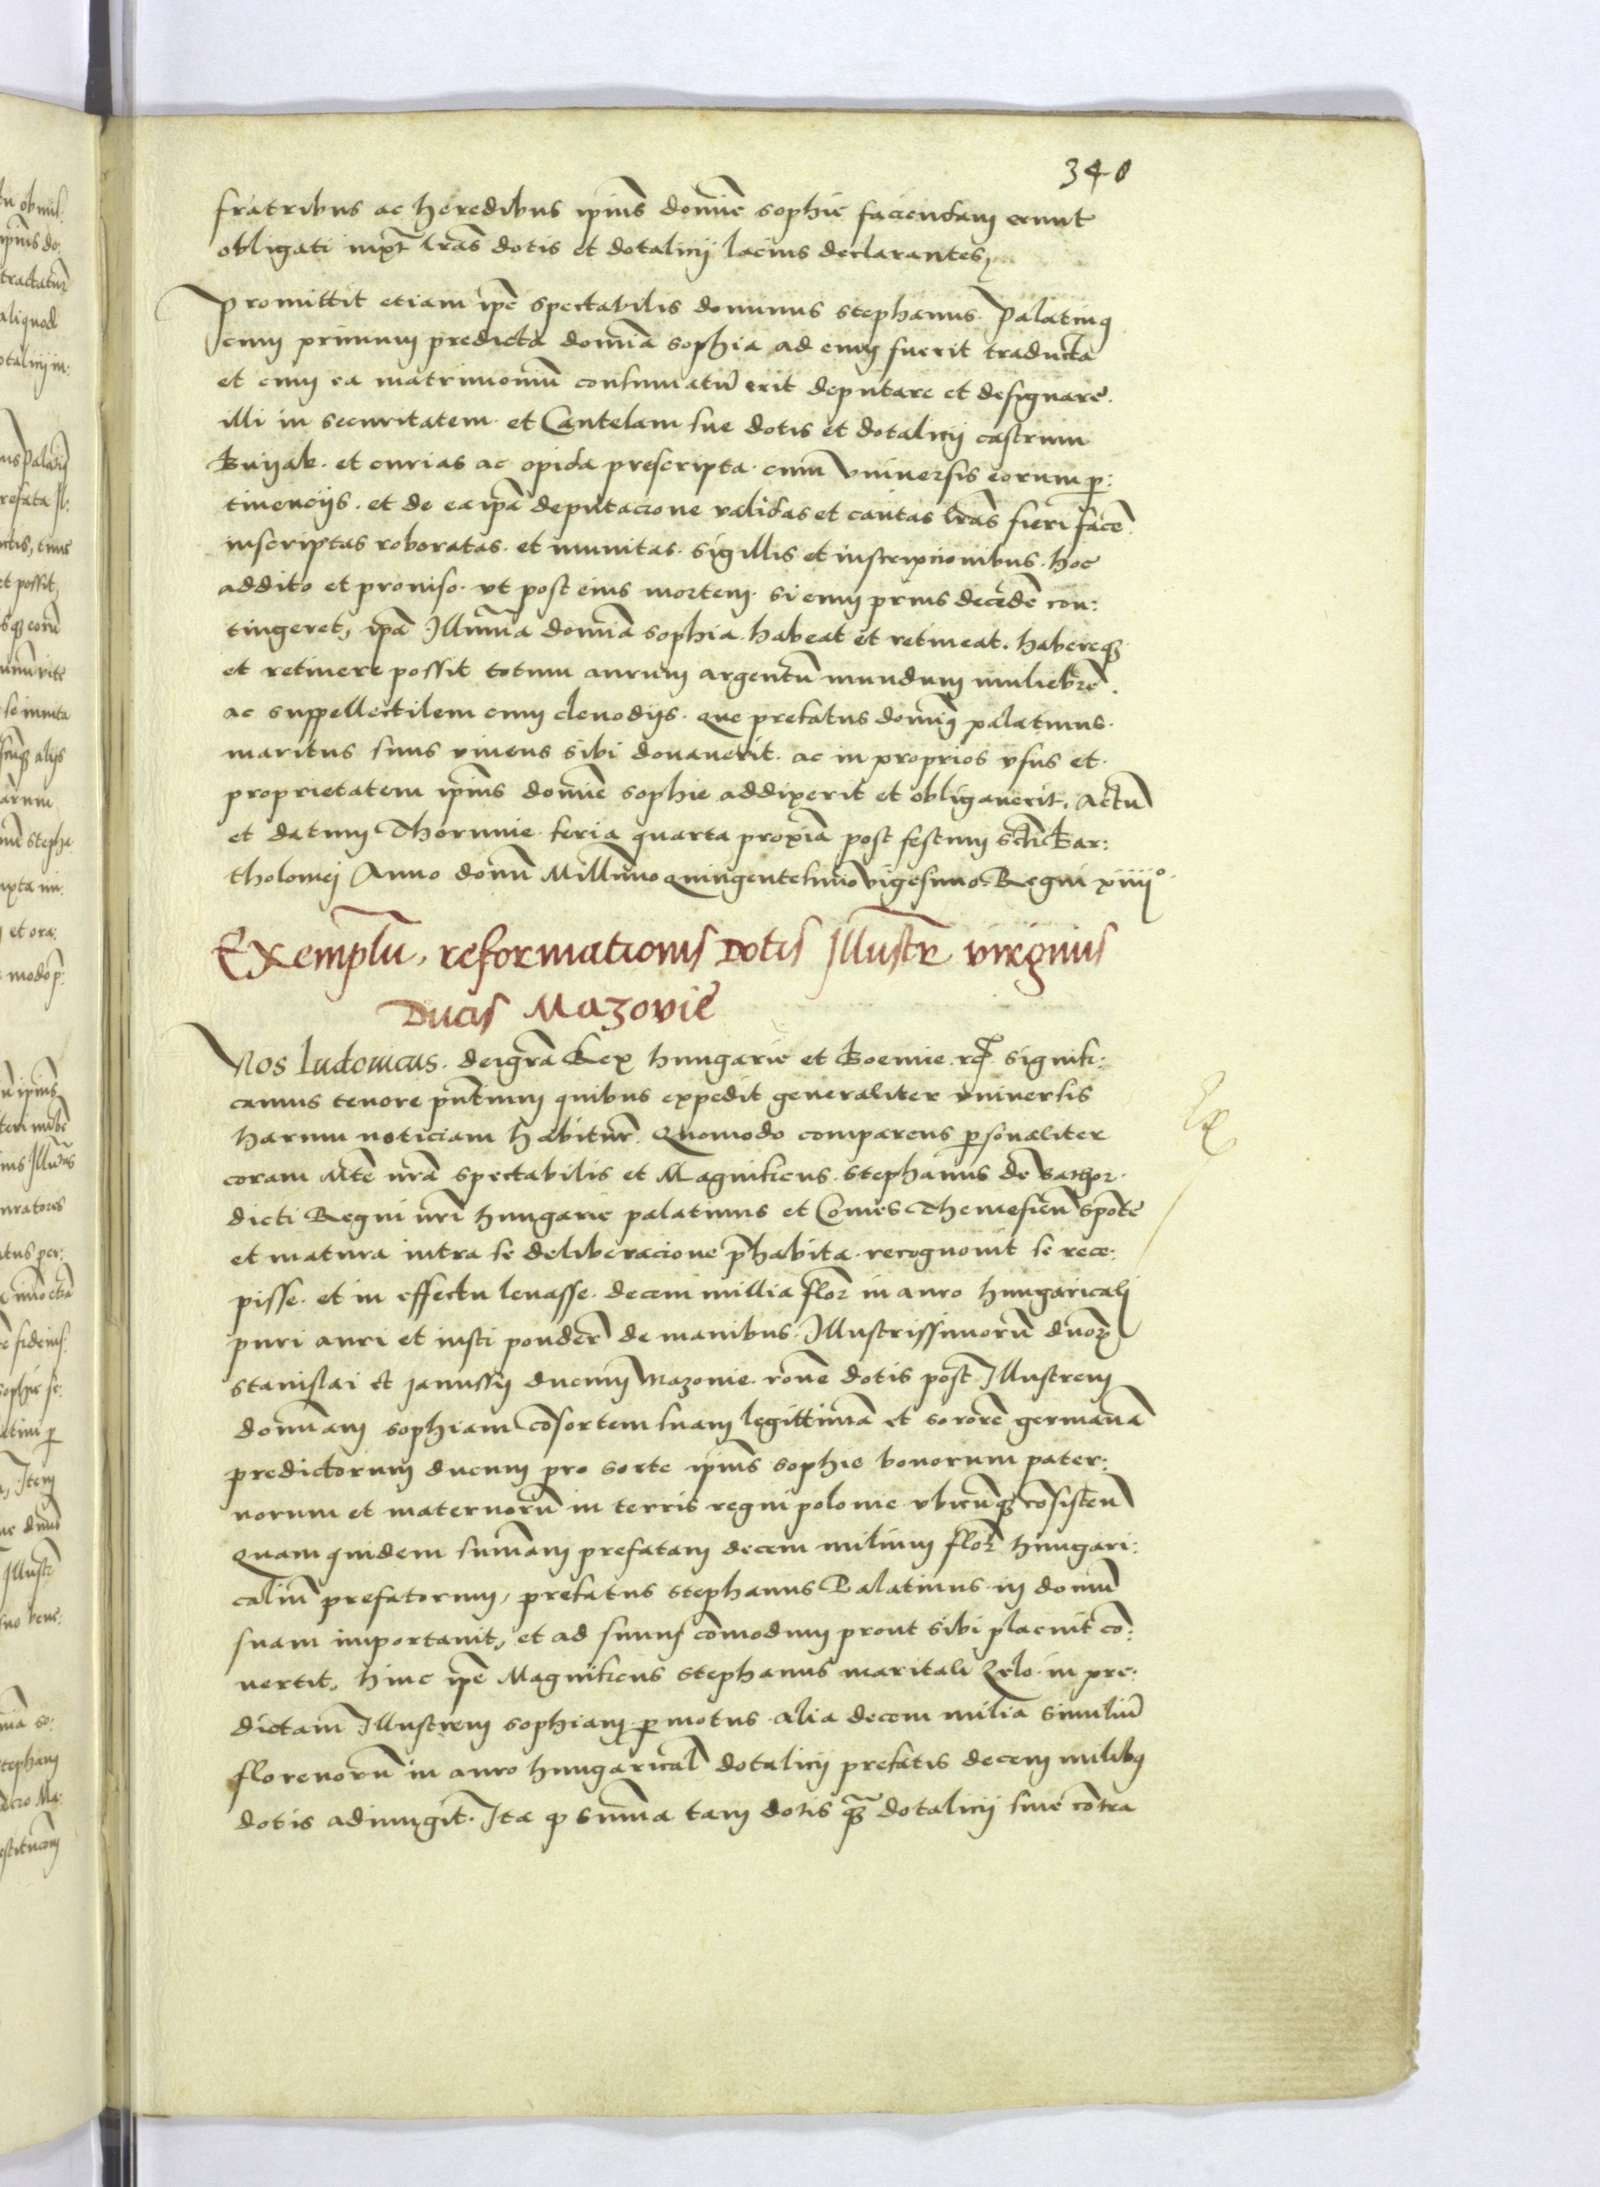 340
fratribus ac heredibus ipius domine sophie faciendam erunt
obligati iuxt lras dotis et dotalicij lacius declarantes,
Promittit etiam ipe spectabilis dominus stephanus Palatinus
cum primum predicta domina sophia ad eum fuerit traducta
et cum ea matrimonium consumatu erit deputare et designare
illi in securitatem et Cautelam sue dotis et dotalicij castrum
Buijak et curias ac opida prescripta cum vniuersis eorum per:
tinencijs et de ea ipa deputacione validas et cautas lras fieri facere
inscriptas roboratas et munitas sigillis et inscripcionibus hoc
addito et prouiso vt post eius mortem si eum prius decede con:
tingeret, ipa Illma domina sophia habeat et retineat habereq
et retinere possit totum aurum argentu mundum muliebre
ac suppellectilem cum clenodijs que prefatus dominus palatinus
maritus suus viuens sibi donauerit ac in proprios vsus et
proprietatem ipius domine sophie addixerit et obligauerit. Actu
et datum Thorunie feria quarta proxima post festum scti Bar:
tholomej Anno domi Millimo quingentesimo vigesimo Regni xiiij°
Exemplu, reformationis Dotis Illustr virginis
Ducis Mazovie
Nos Ludouicus dei gra Rex hungarie et Boemie rc signifi:
camus tenore pntium quibus expedit generaliter vniuersis
harum noticiam habitur Quomodo comparens personaliter
coram Mte nra spectabilis et Magnificus stephanus de Bathor
dicti Regni nri hungarie palatinus et Comes Themesien sponte
et matura intra se deliberacione prehabita recognouit se rece:
pisse et in effectu leuasse decem millia flor in auro hungaricali
puri auri et iusti ponder de manibus Illustrissimoru duor
stanislai et janussij ducum Mazouie rone dotis post Illustrem
dominam sophiam cosortem suam legittima et sorore germana
predictorum ducum pro sorte ipius sophie bonorum pater:
norum et maternoru in terris regni polonie vbicuq cosisten
Quam quidem sumam prefatam decem milium flor hungari:
caliu prefatorum, prefatus stephanus Palatinus in domu
suam importauit, et ad suum comodum prout sibi placuit co:
uertit, hinc ipe Magnificus stephanus maritali zelo in pre:
dictam Illustrem sophiam permotus alia decem milia similiu
florenoru in auro hungarical dotalicij prefatis decem milibus
dotis adiungit. Ita q suma tam dotis q dotalicij siue contra